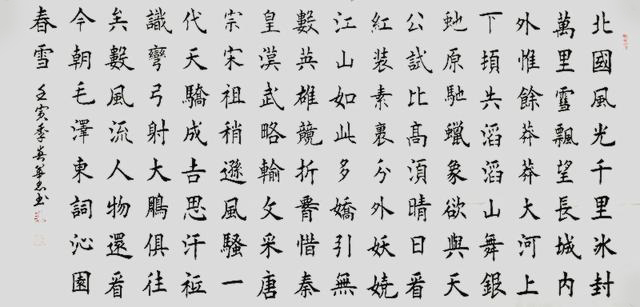 北國風光千里冰封
萬里雪飄望長城內
外惟餘莽莽大河上
下頓失滔滔山舞銀
虵原馳蠟象欲與天
公試比高須晴日看
紅装素裹分外妖嬈
江山如此多嬌引無
數英雄競折腰惜秦
皇漢武略輸文采唐
宗宋祖稍遜風騷一
代天驕成吉思汗祗
識彎弓射大鵰俱往
矣數風流人物還看
今朝毛澤東詞沁園
春雪 壬寅季春